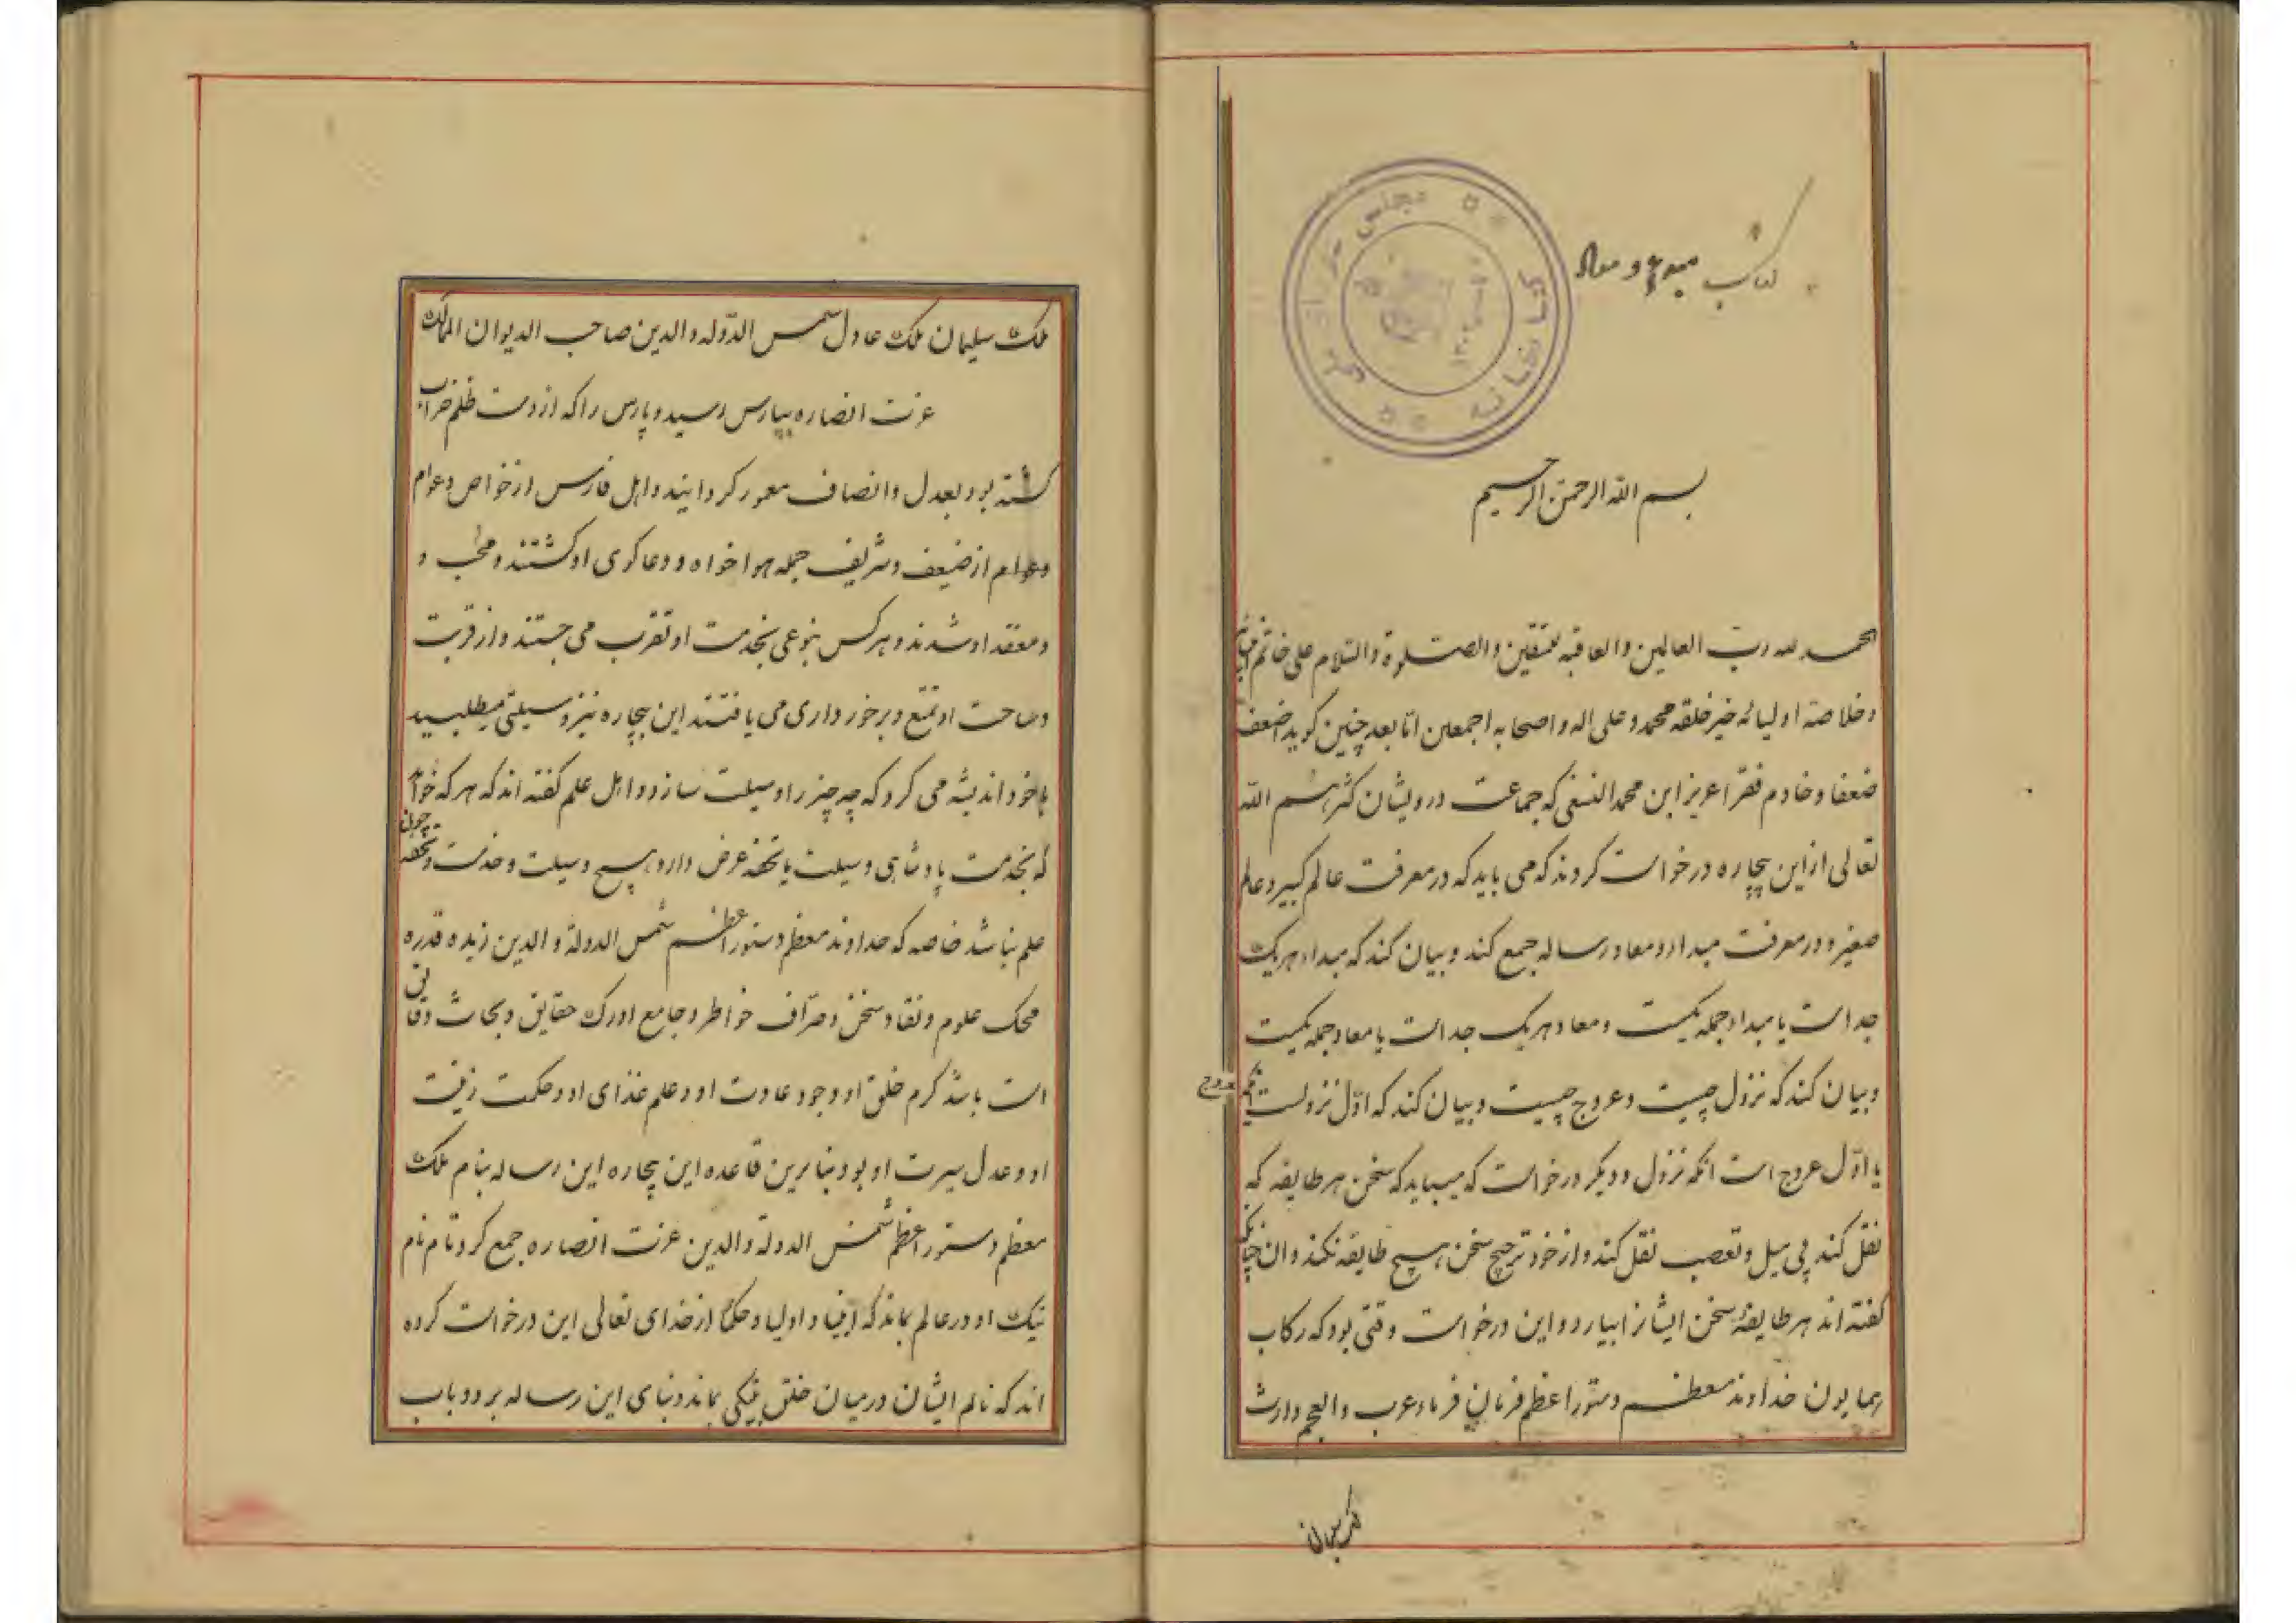 کتاب مبدء و معاد
کتابخانه مجلس
بسم الله الرحمن الرحیم
الحمد لله رب العالمین والعاقبه للمتقین والصلوة والسلام علی خاتم انبیائه
وخلاصة اولیائه خیر خلقه محمد وعلی اله واصحابه اجمعین اما بعد چنین گوید اضعف
ضعفا وخادم فقرا عزیز ابن محمد النسفی که جماعت درویشان کثرهم الله
تعالی ازاین بیچاره درخواست کردند که می باید که در معرفت عالم کبیر وعالم
صغیر و در معرفت مبداء و معاد رساله جمع کند و بیان کند که مبداء هریک
جداست یا مبداء جمله یکیست ومعاد هریک جداست یا معاد جمله یکیست
وبیان کند که نزول چیست وعروج چیست وبیان کند که اول نزولست آنگه عروج
یا اول عروج است انگه نزول و دیگر درخواست که میباید که سخن هر طایفه که
نقل کند بی میل وتعصب نقل کند واز خود ترجیح سخن هیچ طایفه نکند وان چنانکه
گفته اند هر طایفه سخن ایشانرا بیارد واین درخواست وقتی بود که رکاب
همایون خداوند معظم دستور اعظم فرمان فرماء عرب والعجم وارث
ملک سلیمان
ملک سلیمان ملک عادل شمس الدوله والدین صاحب الدیوان الممالک
عزت انصاره بپارس رسید و پارس را که از دست ظلم خراب
گشته بود بعدل وانصاف معمور گردانید واهل فارس از خواص وعوام
وعوام از ضیعف وشریف جمله هواخواه ودعاگوی او گشتند ومحب و
ومعقد او شدند و هرکس بنوعی بخدمت او تقرب می جستند واز قربت
وصاحت او تمتع وبرخورداری می یافتند این بیچاره نیز وسیلتی میطلبید
باخود اندیشه می کرد که چه چیز را وسیلت سازد و اهل علم گفته اند که هرکه خواهد
که بخدمت پادشاهی وسیلت یا تحفه عرض دارد هیچ وسیلت وخدمت وتحفه چون
علم نباشد خاصه که خداوند معظم دستور اعظم شمس الدولة والدین زیده قدره
محک علوم ونقاد سخن وصراف خواطر وجامع اورک حقایق وبحاث دقایق
است باشد کرم خلق او وجود عادت او وعلم غذای او وحکمت زینت
او وعدل سیرت او بود بنابرین قاعده این بیچاره این رساله بنام ملک
معظم دستور اعظم شمس الدولة والدین عزت انصاره جمع کرد تا نام
نیک او در عالم بماند که انبیا و اولیا وحکما از خدای تعالی این درخواست کرده
اند که نام ایشان درمیان خلق بنیکی بماند وبنای این رساله بر دو باب